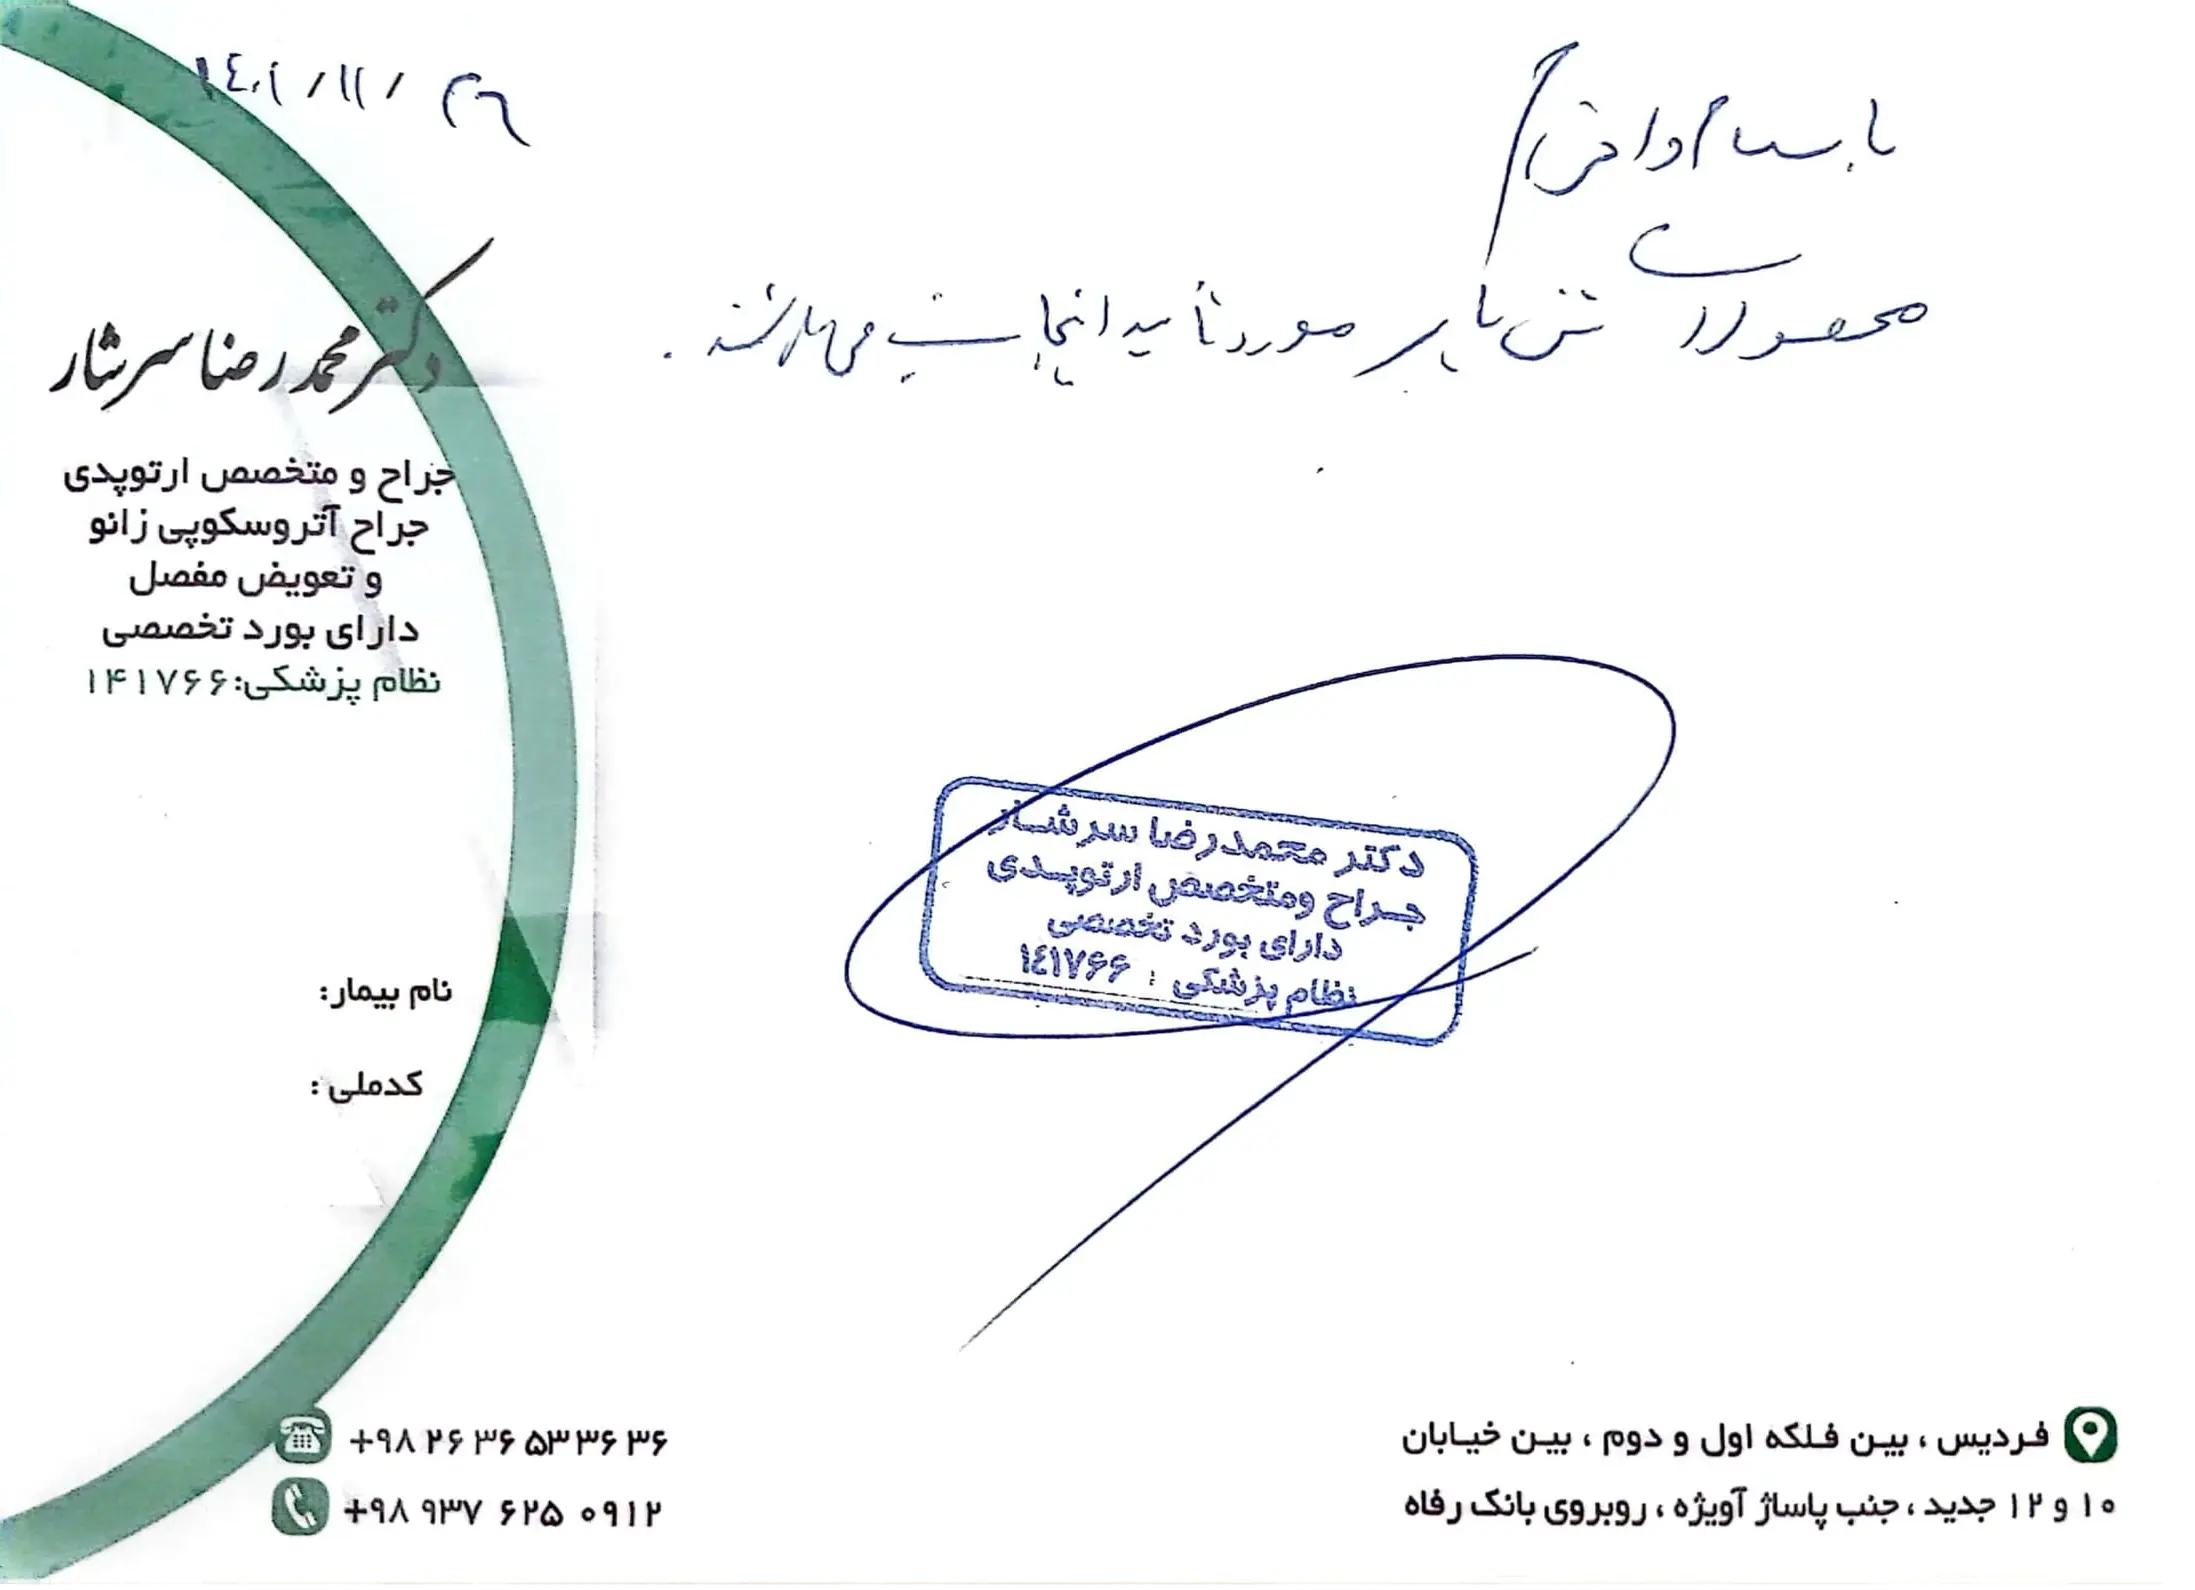 ۱۴۰۱/۱۱/۲۶
با سلام و احترام
محصولات تن یار مورد تأیید اینجانب می‌باشند.
دکتر محمدرضا سرشار
جراح و متخصص ارتوپدی
جراح آتروسکوپی زانو
و تعویض مفصل
دارای بورد تخصصی
نظام پزشکی: ۱۴۱۷۶۶
دکتر محمدرضا سرشار
جراح و متخصص ارتوپدی
دارای بورد تخصصی
نظام پزشکی : ۱٤۱۷۶۶
نام بیمار:
کدملی :
فردیس ، بین فلکه اول و دوم ، بین خیابان
۱۰ و ۱۲ جدید ، جنب پاساژ آویژه ، روبروی بانک رفاه
+۹۸ ۲۶ ۳۶ ۵۳ ۳۶ ۳۶
+۹۸ ۹۳۷ ۶۲۵ ۰۹۱۲